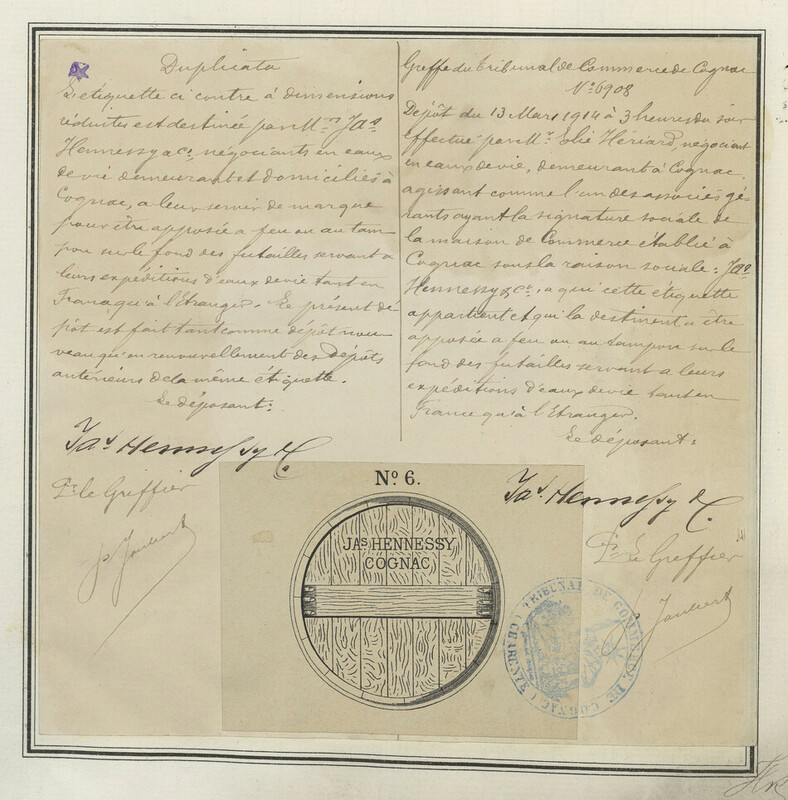 Duplicata
L'étiquette ci contre à dimensions
réduites est destinée par Mrs Jas
Hennessy & Co, négociants en eaux
de vie demeurant et domiciliés à
Cognac, a leur servir de marque
pour être apposée a feu ou au tam-
pon sur le fond des futailles servant a
leurs expéditions d'eaux de vie tant en
France qu'à l'étranger. Le présent dé-
pôt est fait tant comme dépôt nou-
veau qu'en renouvellement des dépôts
antérieurs de la même étiquette.
Le déposant:
Jas Hennessy & Co
Pr le Greffier
Joubert
Greffe du Tribunal de Commerce de Cognac
No 6908
Dépôt du 13 Mars 1914 à 3 heures du soir
effectué par Mr Elie Hériard, négociant
en eaux de vie, demeurant à Cognac,
agissant comme l'un des associés gé-
rants ayant la signature sociale de
la maison de Commerce établie à
Cognac sous la raison sociale: Jas
Hennessy & Co, a qui cette étiquette
appartient et qui la destinent a être
apposée a feu ou au tampon sur le
fond des futailles servant a leurs
expéditions d'eaux de vie tant en
France qu'à l'Etranger.
Le déposant:
Jas Hennessy & Co
Pr Le Greffier
Joubert
No 6.
JAS HENNESSY
COGNAC
TRIBUNAL DE COMMERCE DE COGNAC